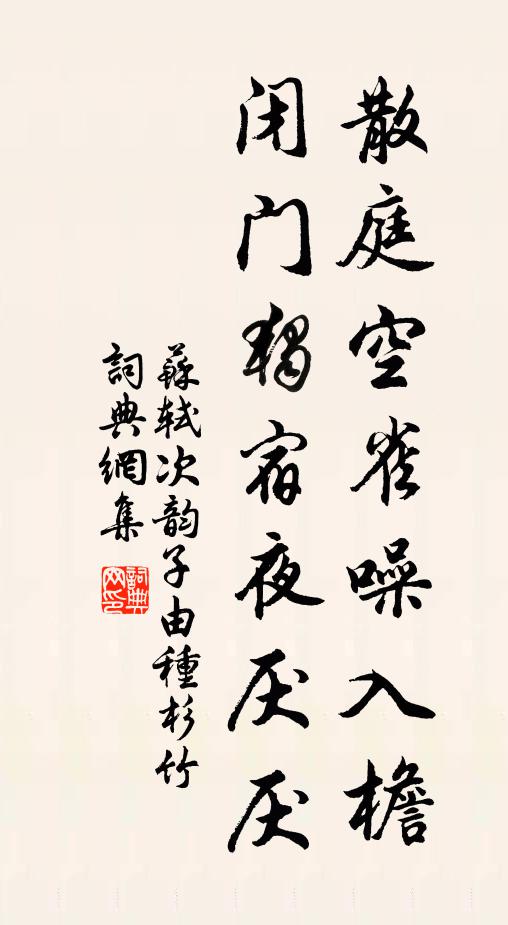 散庭空雀噪入檐
闭门独宿夜厌厌
蘇軾次韵子由種杉竹
詞典網集
詞典
网印